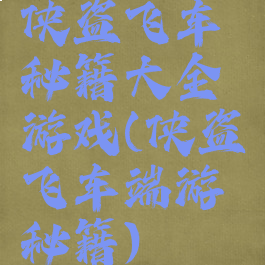 侠盗飞车
秘籍大全
游戏(侠盗
飞车端游
秘籍)